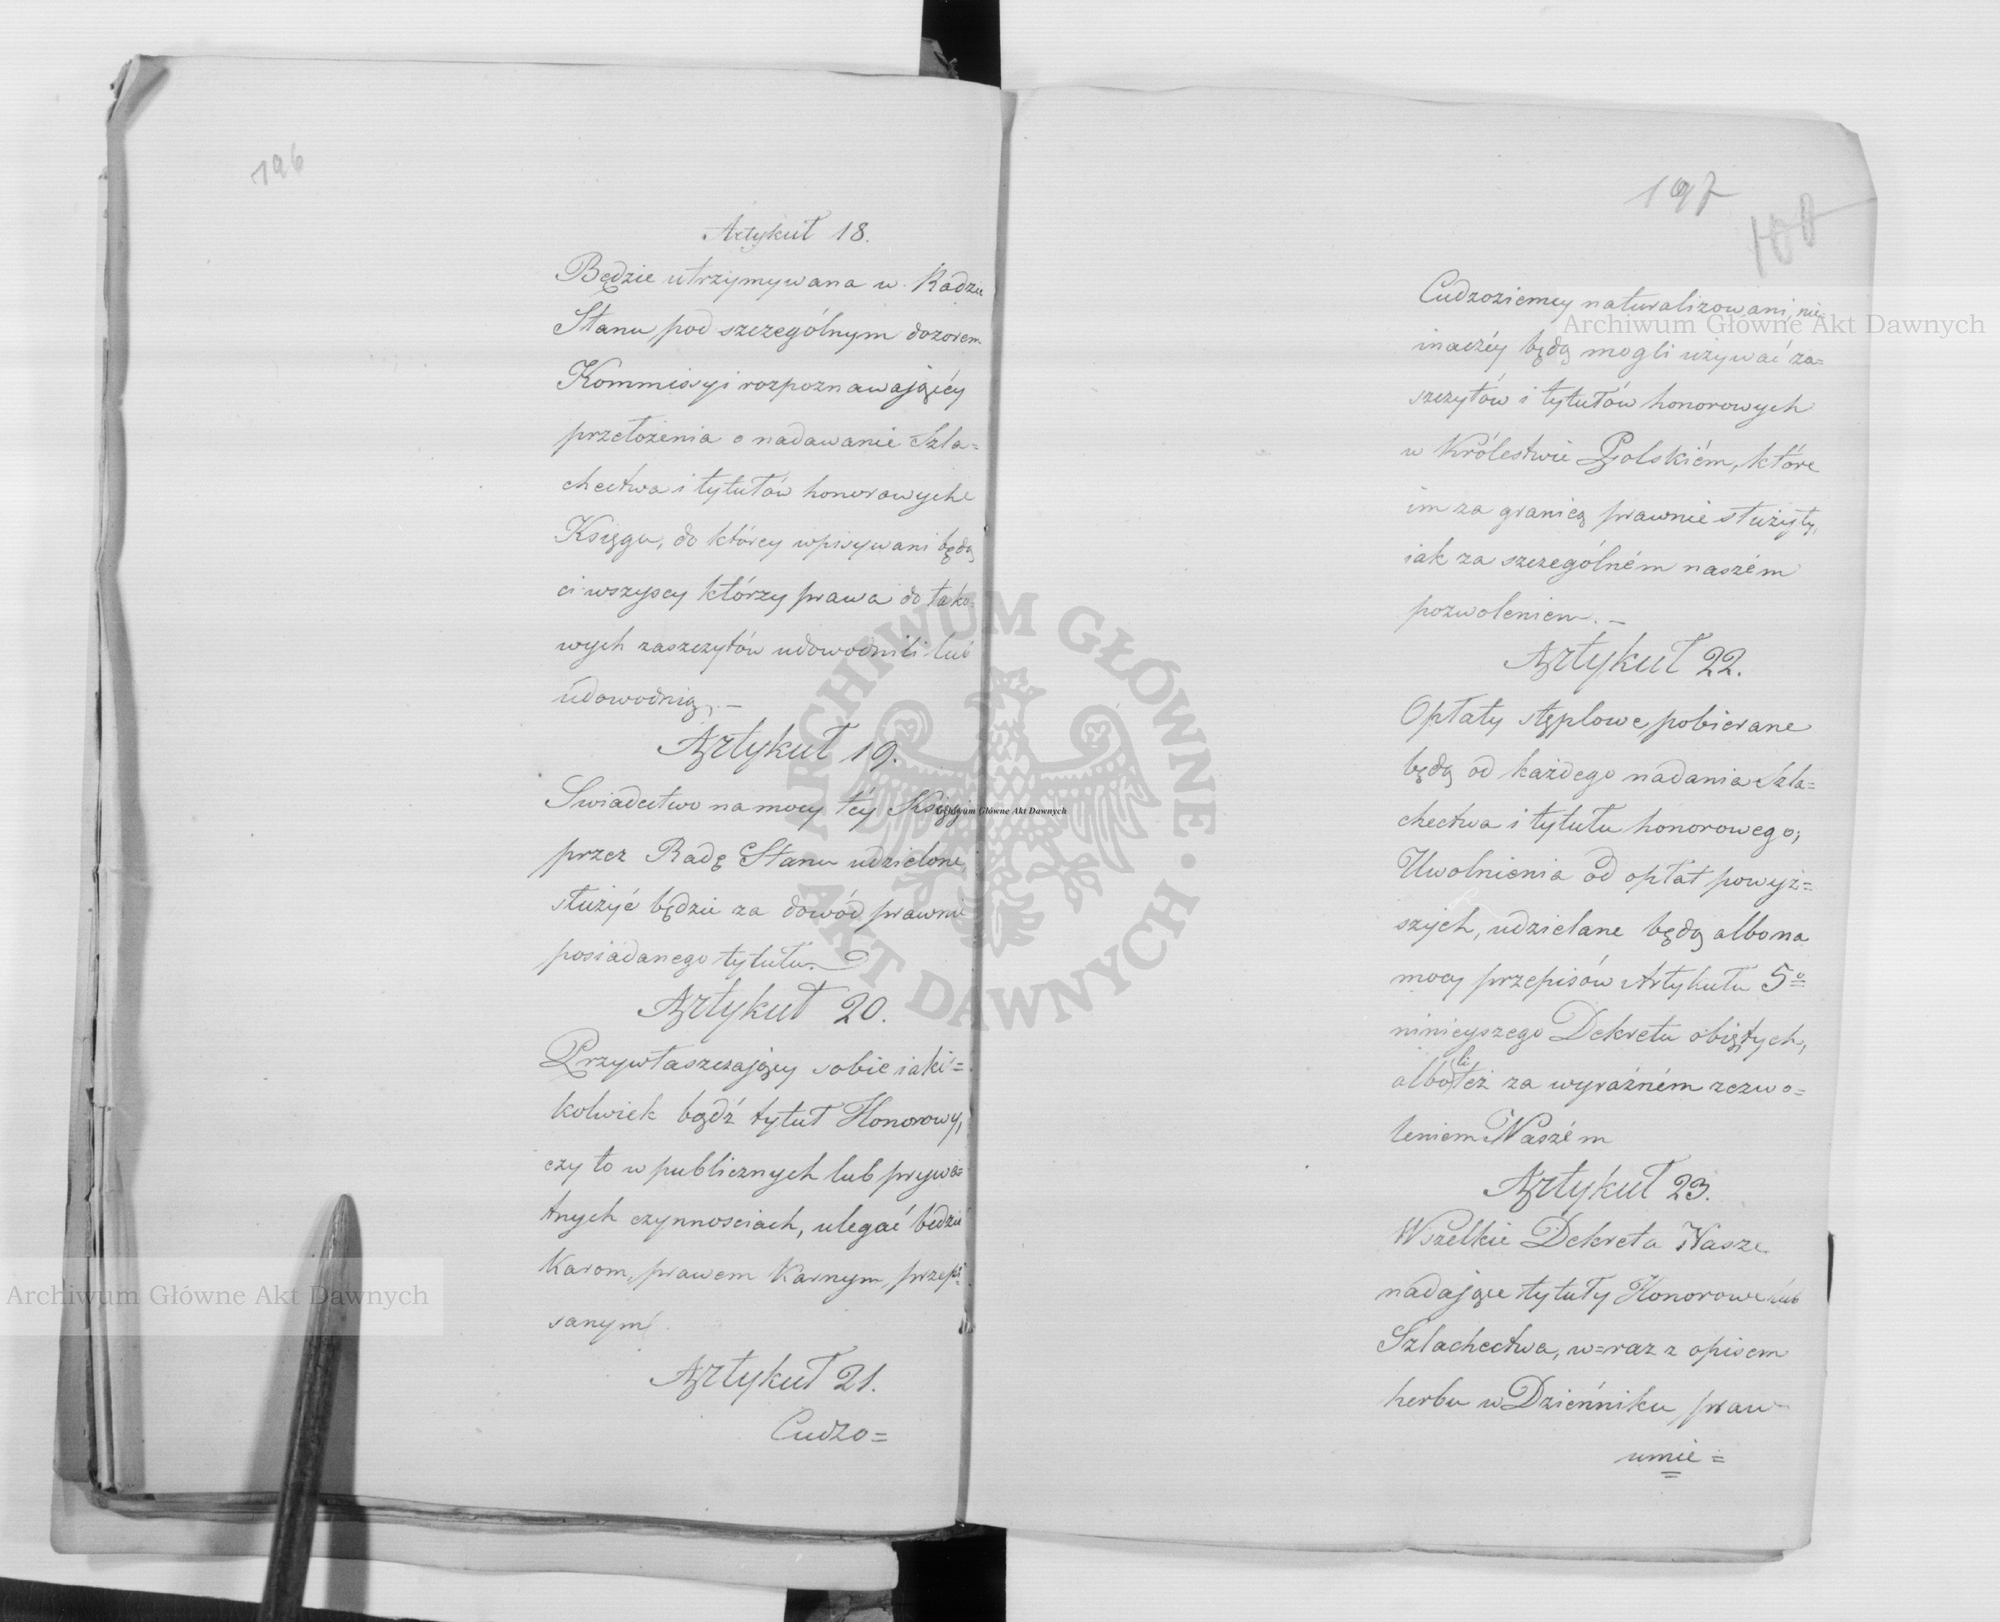 196
Artykuł 18.
Będzie utrzymywana w Radzie
Stanu pod szczególnym dozorem
Kommissyi rozpoznawaiącéy
przełożenia o nadawanie Szla=
chectwa i tytułów honorowych
Księga, do którey wpisywani będą
ci wszyscy którzy prawa do tako=
wych zaszczytów udowodnili lub
udowodnią. —
Artykuł 19.
Swiadectwo na mocy téy Księgi
przez Radę Stanu udzielone,
służyć będzie za dowód prawnie
posiadanego tytułu.
Artykuł 20.
Przywłaszczający sobie iaki=
kolwiek bądź tytuł Honorowy,
czy to w publicznych lub prywa=
tnych czynnosciach, ulegać będzie
Karom, prawem Karnym przepi=
sanym
Artykuł 21.
Cudzo=
197
100
Cudzoziemcy naturalizowani, nie
inaczéy będą mogli używać za=
szczytów i tytułów honorowych
w Królestwie Polskiém, które
im za granicą prawnie służyły,
iak za szczególném naszém
pozwoleniem. —
Artykuł 22.
Opłaty stęplowe pobierane
będą od każdego nadania Szla=
chectwa i tytułu honorowego;
Uwolnienia od opłat powyż=
szych, udzielane będą albo na
mocy przepisów Artykułu 5º
ninieyszego Dekretu obiętych,
alboli też za wyraźném zezwo=
leniem Naszém
Artykuł 23.
Wszelkie Dekreta Nasze
nadające tytuły Honorowe lub
Szlachectwa, w=raz z opisem
herbu w Dzienniku praw
umie=
Archiwum Główne Akt Dawnych
Archiwum Główne Akt Dawnych
Archiwum Główne Akt Dawnych
ARCHIWUM GŁÓWNE · AKT DAWNYCH ·